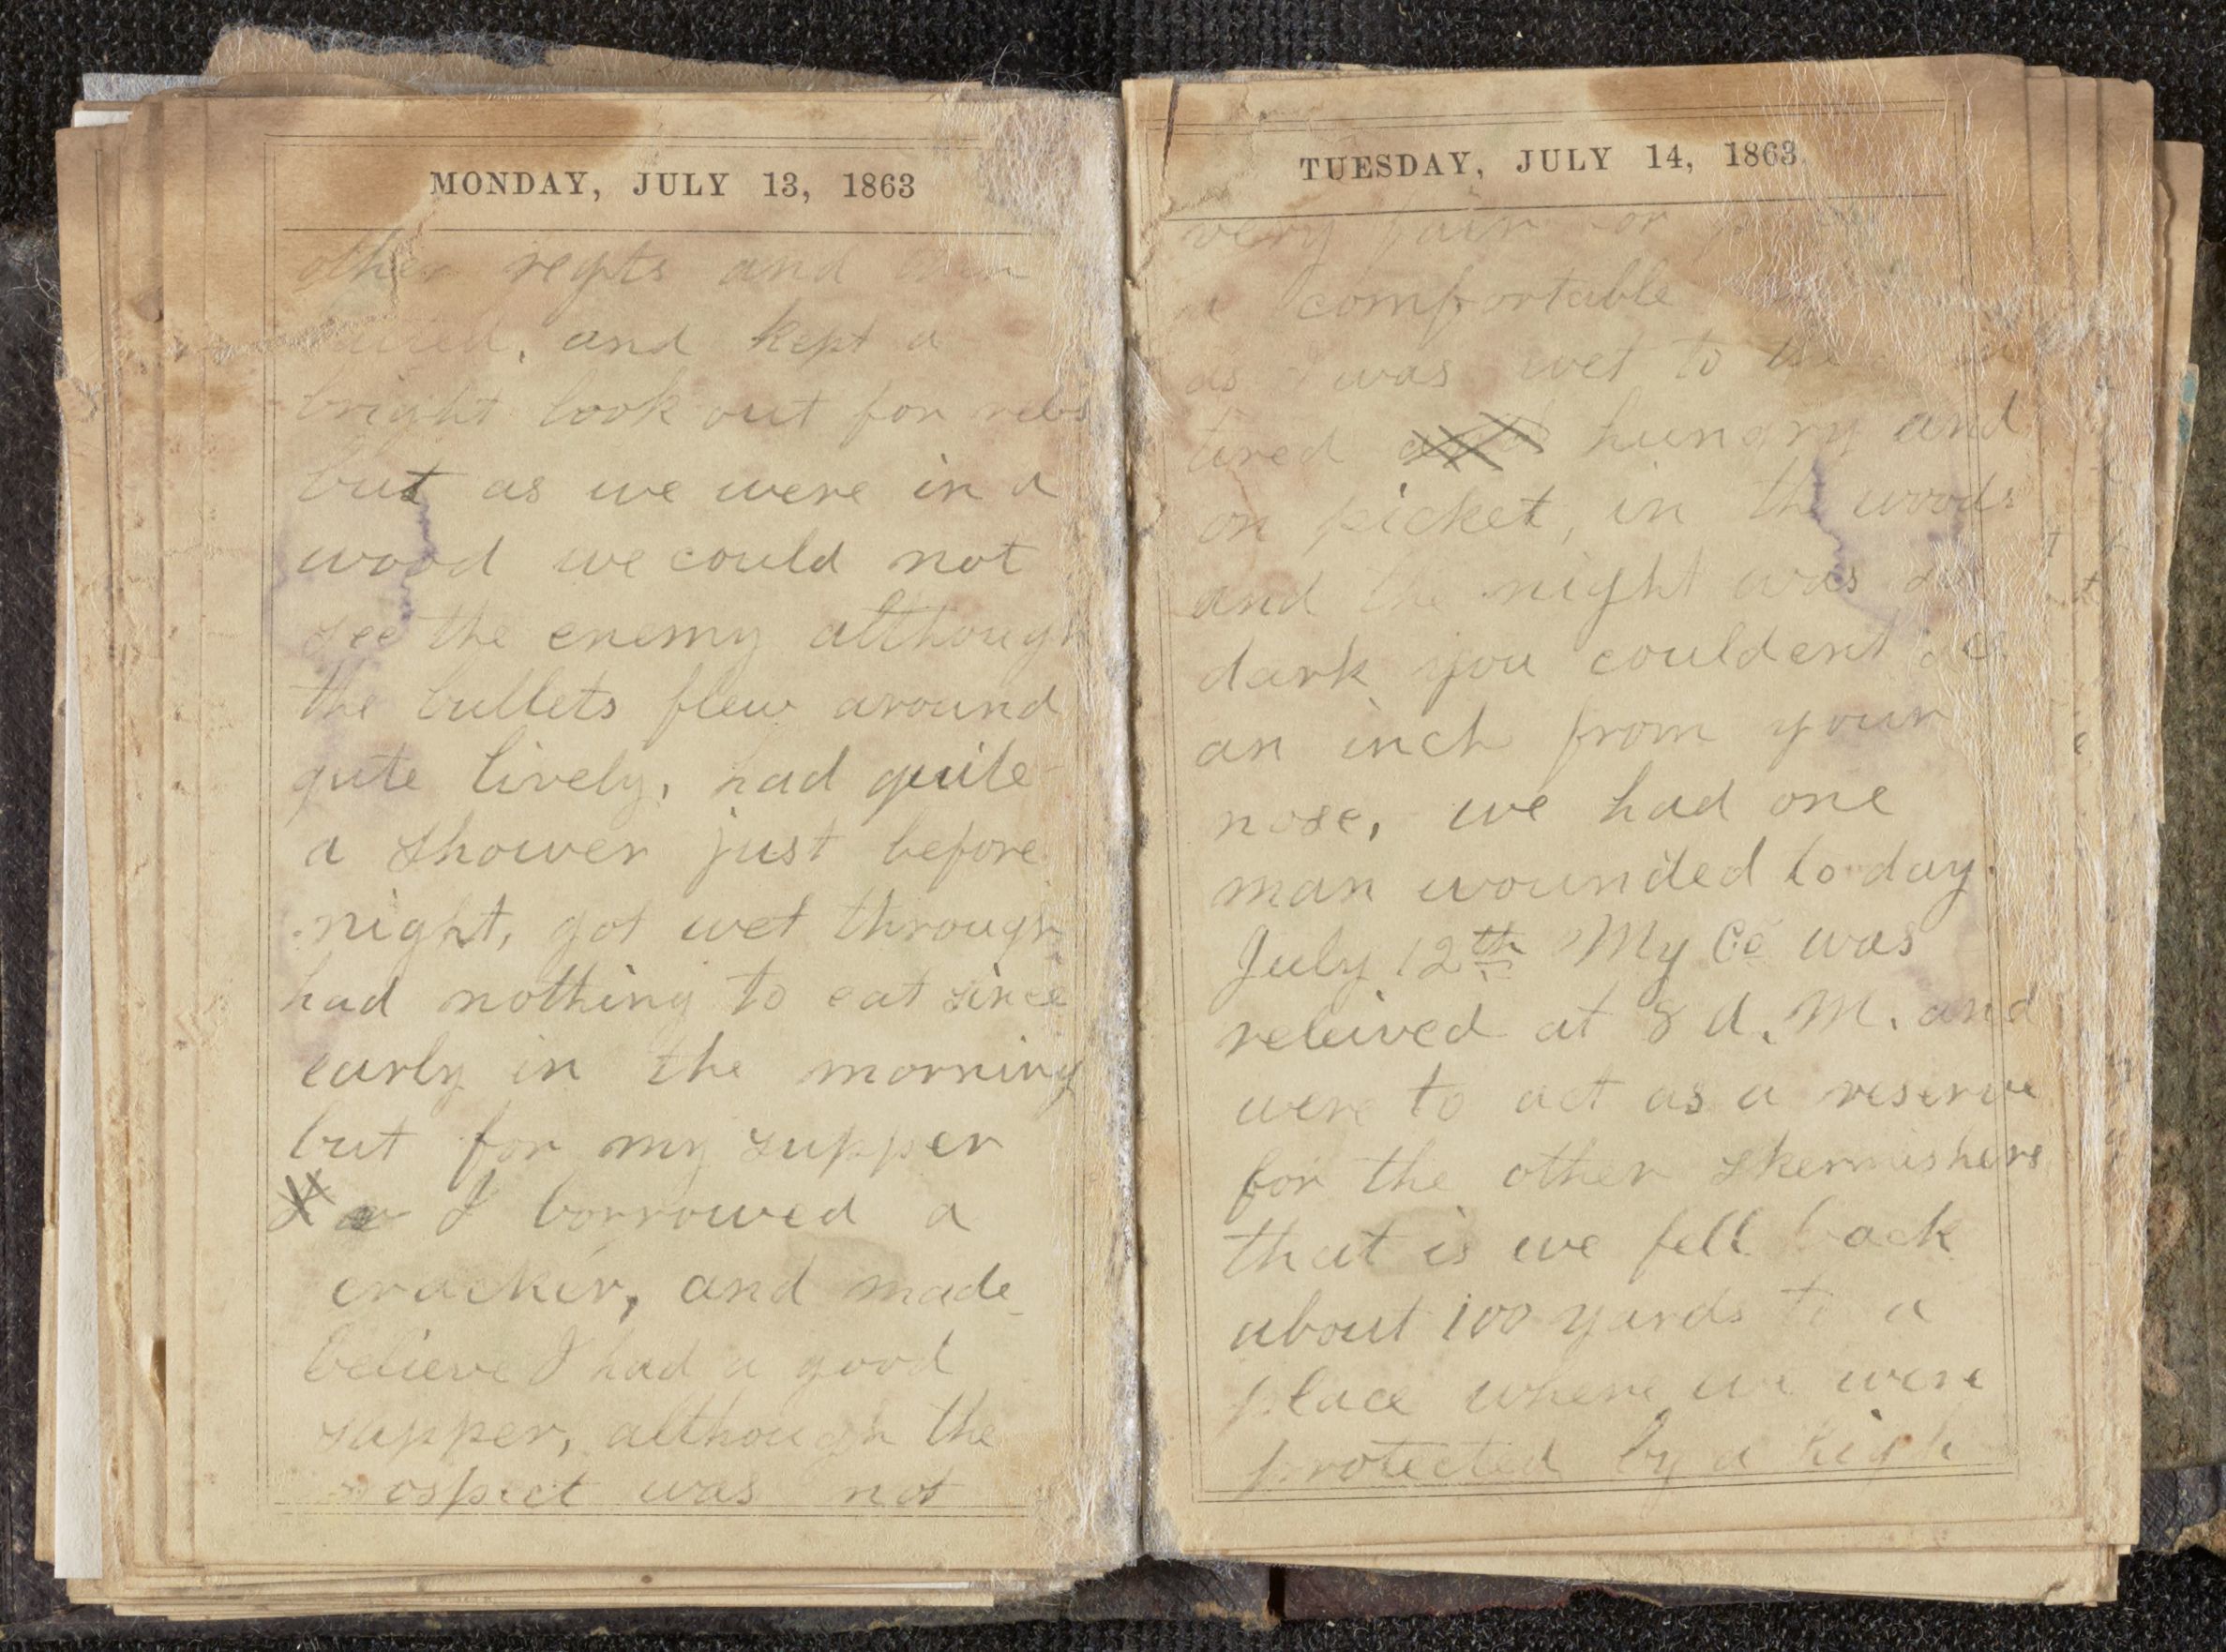 MONDAY, JULY 13, 1863
other regts and then
and kept a
bright look out for rebs
but as we were in a
wood we could not
see the enemy although
the bullets flew around
qute lively, had quite
a shower just before
night, got wet through
had nothing to eat since
early in the morning
but for my supper
I borrowed a
cracker, and made
believe I had a good
supper, although the
ospect was not
TUESDAY, JULY 14, 1863.
very fair or
a comfortable
as I was wet to the
tired and hungry and
on picket, in the woods
and the night was so
dark you couldent see
an inch from your
nose, we had one
man wounded to day.
July 12th My Co was
releived at 8 A. M. and
were to act as a reserve
for the other skermishers
that is we fell back
about 100 yards to a
place where we were
protected by a high